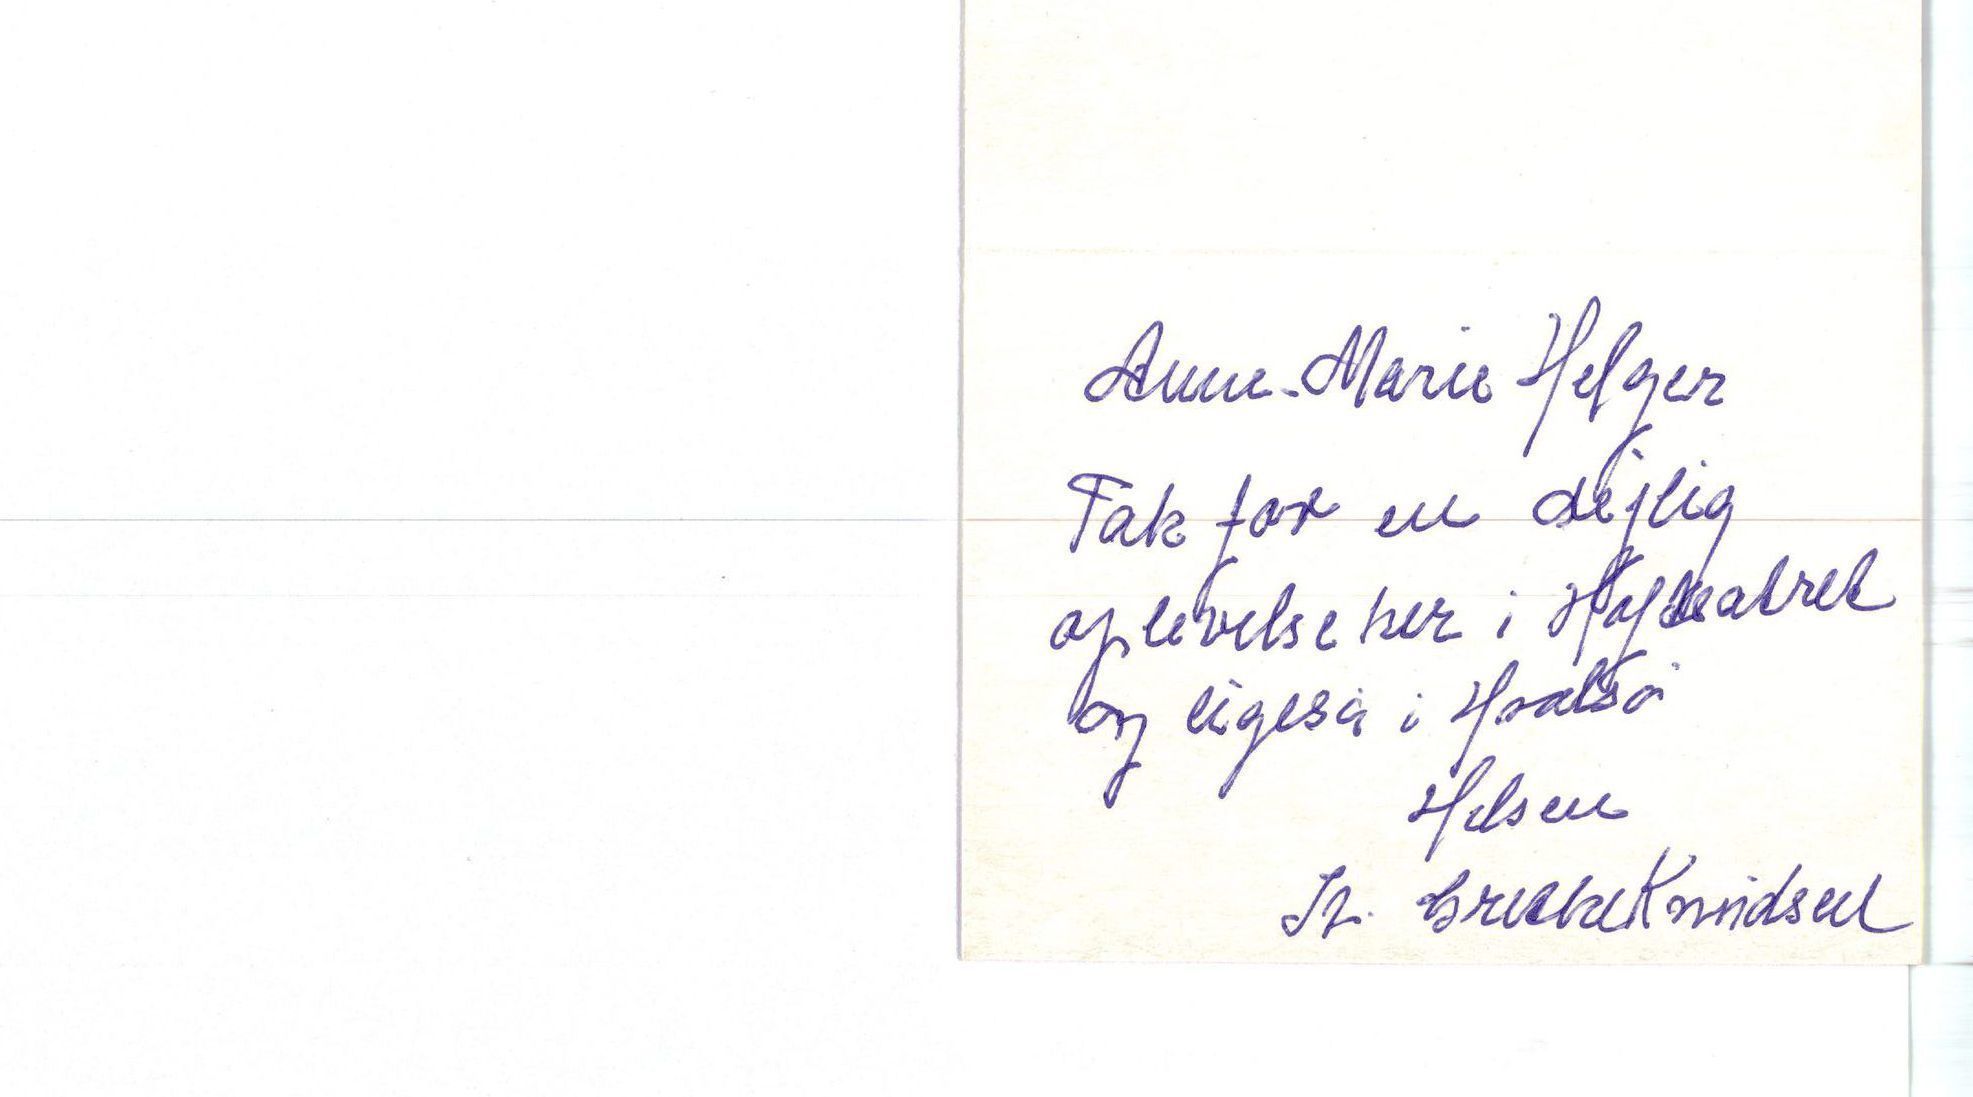 Anne-Marie Helger
Tak for en dejlig
oplevelse her i Hofteatret
og ligeså i Hvalsø
Hilsen
Grethe Knudsen